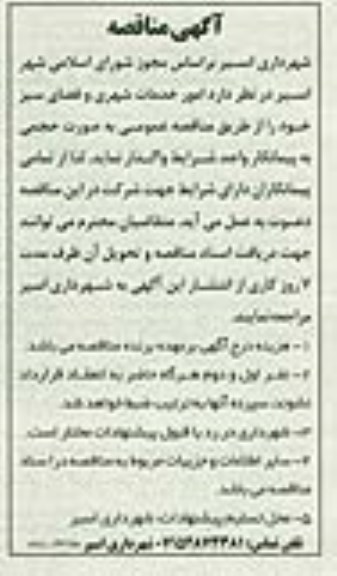 آگهی مناقصه
شهرداری اسیر براساس مجوز شورای اسلامی شهر
اسیر در نظر دارد امور خدمات شهری و فضای سبز
خود را از طریق مناقصه عمومی به صورت حجمی
به پیمانکار واجد شرایط واگذار نماید. لذا از تمامی
پیمانکاران دارای شرایط جهت شرکت در این مناقصه
دعوت به عمل می آید. متقاضیان محترم می توانند
جهت دریافت اسناد مناقصه و تحویل آن ظرف مدت
روز کاری از انتشار این آگهی به شهرداری اسیر
مراجعه نمایند.
۱- هزینه درج آگهی بر عهده برنده مناقصه می باشد.
۲- نفر اول و دوم هرگاه حاضر به انعقاد قرارداد
نشوند، سپرده آنها به ترتیب ضبط خواهد شد.
۳- شهرداری در رد یا قبول پیشنهادات مختار است.
۴- سایر اطلاعات و جزییات مربوط به مناقصه در اسناد
مناقصه می باشد.
۵- محل تسلیم پیشنهادات: شهرداری اسیر
تلفن تماس: شهرداری اسیر